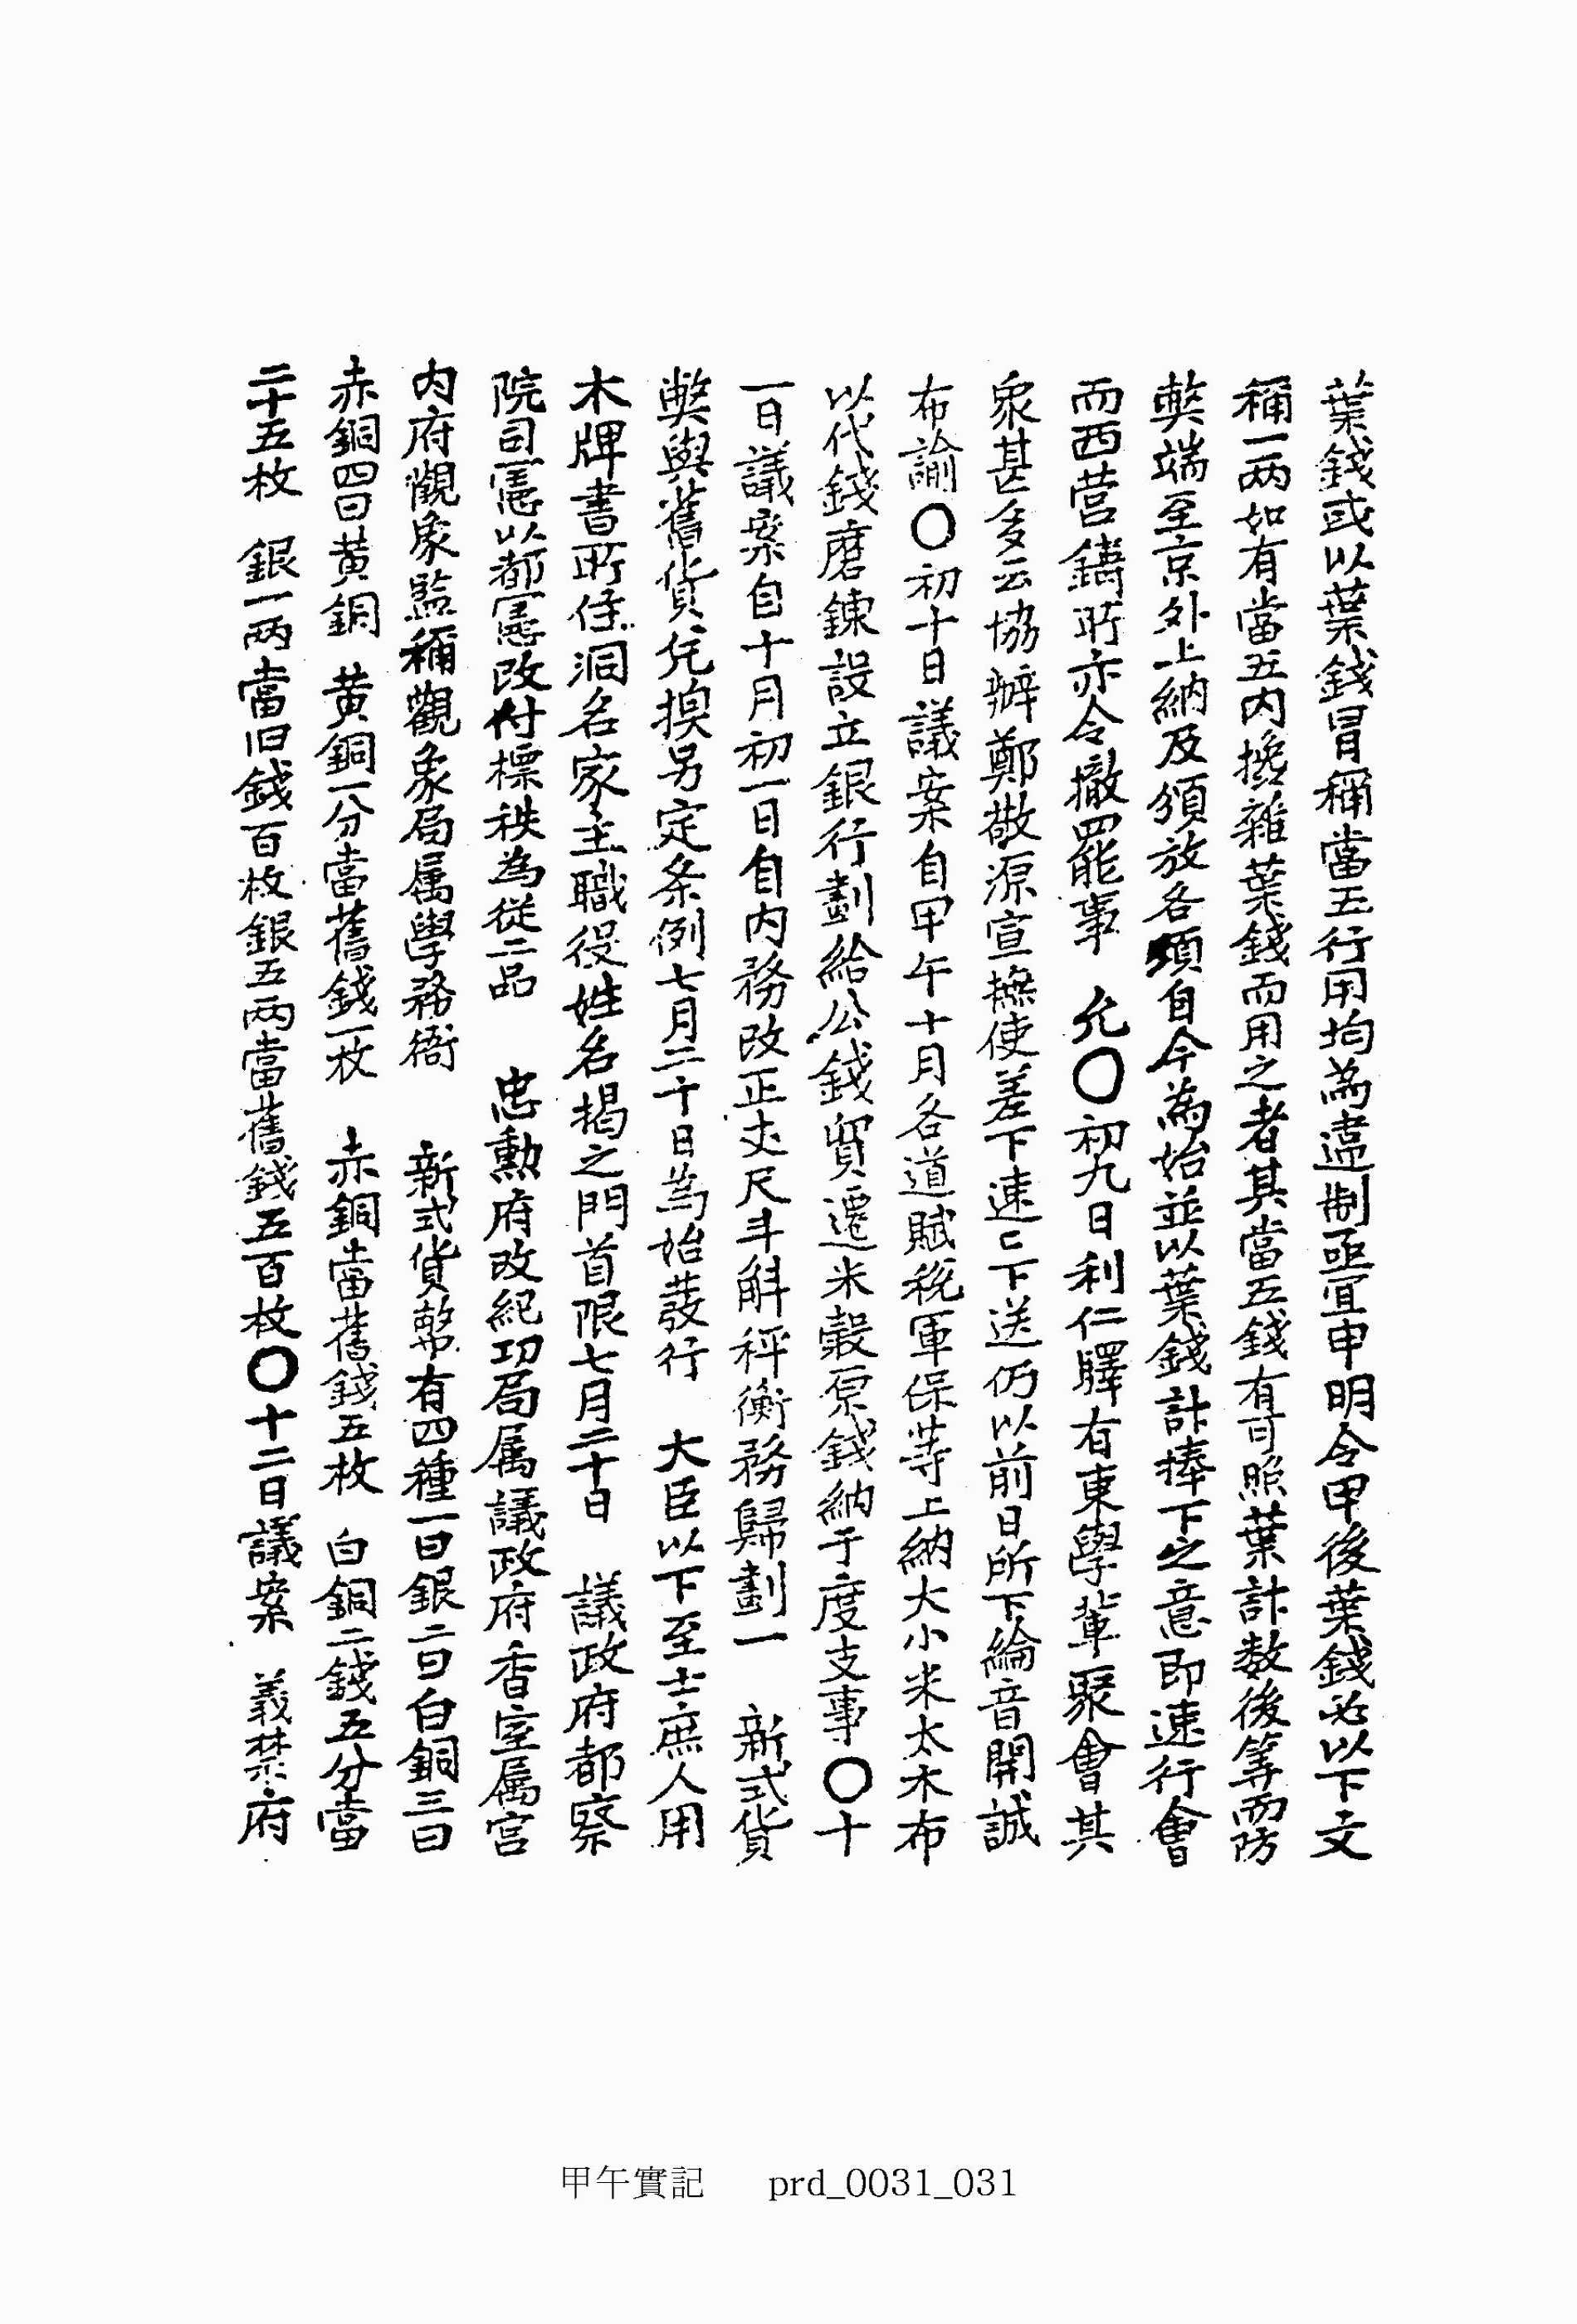 葉錢或以葉錢冒稱當五行用均爲違制亟宜申明令甲後葉錢必以下文
稱一两如有當五内攙雜葉錢而用之者其當五錢有可照葉計數後等而防
獘端至京外上納及頒放各項自今爲始並以葉錢計捧下之意即速行會
而西营鑄所亦令撤罷事 允○初九日利仁驛有東學輩聚會其
衆甚多云協辦鄭敬源宣撫使差下速〻下送仍以前日所下綸音開誠
布諭○初十日議案自甲午十月各道賦稅軍保等上納大小米太木布
以代錢磨鍊設立銀行劃給公錢貿遷米穀原錢納于度支事○十
一日議案自十月初一日自内務改正丈尺斗斛秤衡務歸劃一 新式貨
獘與舊貨兌換另定条例七月二十日爲始發行 大臣以下至士庶人用
木牌書所住洞名家主職役姓名揭之門首限七月二十日 議政府都察
院司憲以都憲改付標秩為從二品 忠勳府改紀功局属議政府香室属宫
内府觀象監稱觀象局属學務衙 新式貨幣有四種一曰銀二曰白銅三曰
赤銅四曰黄銅 黄銅一分當舊錢一枚 赤銅當舊錢五枚 白銅二錢五分當
二十五枚 銀一两當旧錢百枚銀五两當舊錢五百枚○十二日議案 義禁府
甲午實記 prd_0031_031